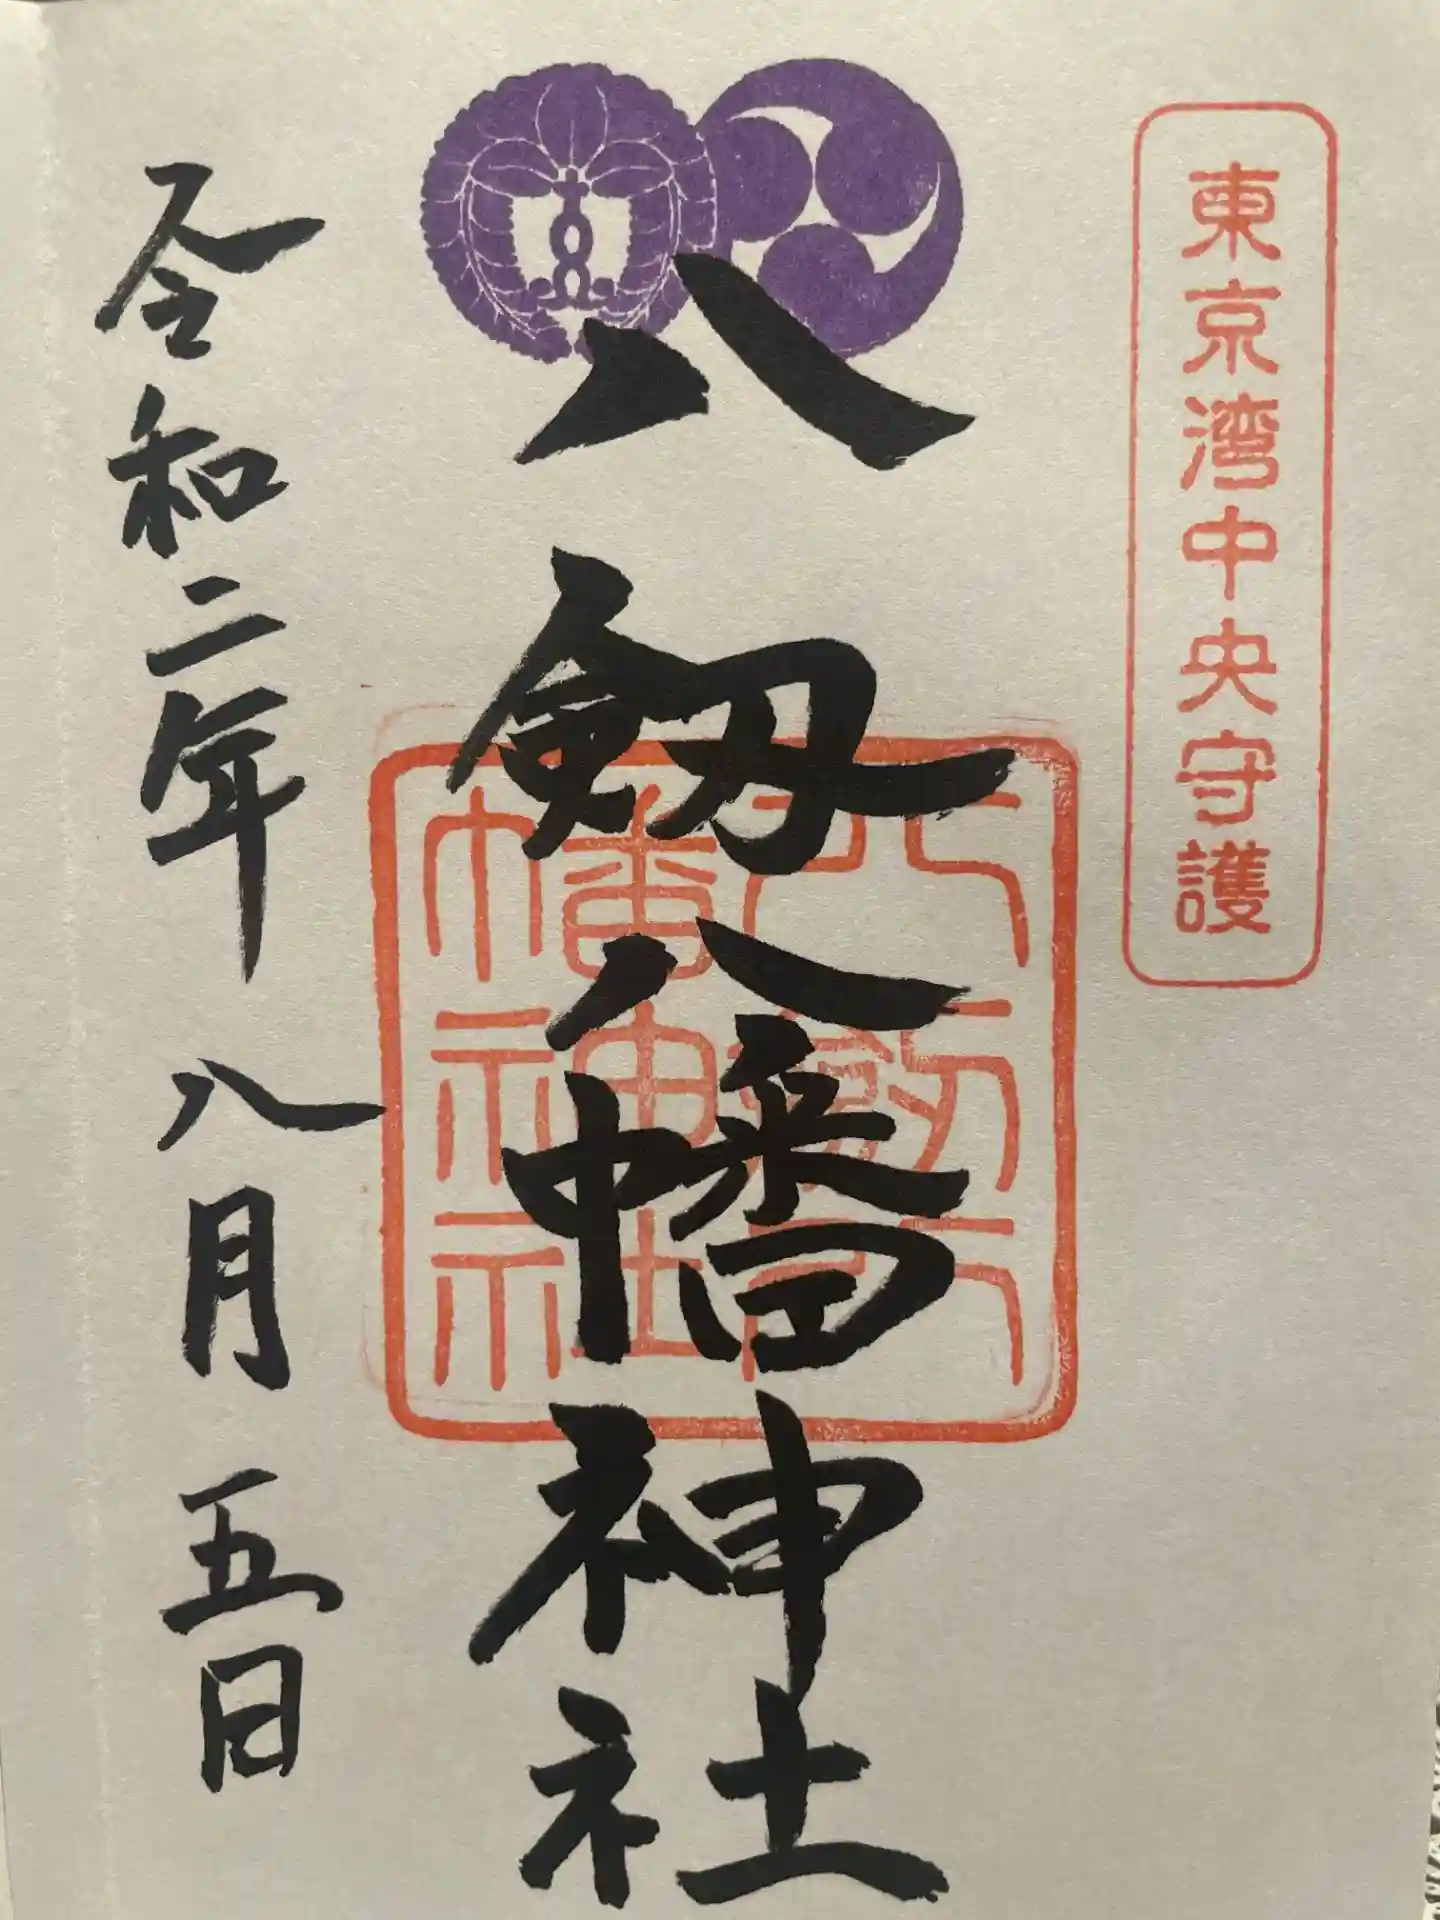 東京湾中央守護
八剱八幡神社
八剱八幡神社
令和二年 八月 五日